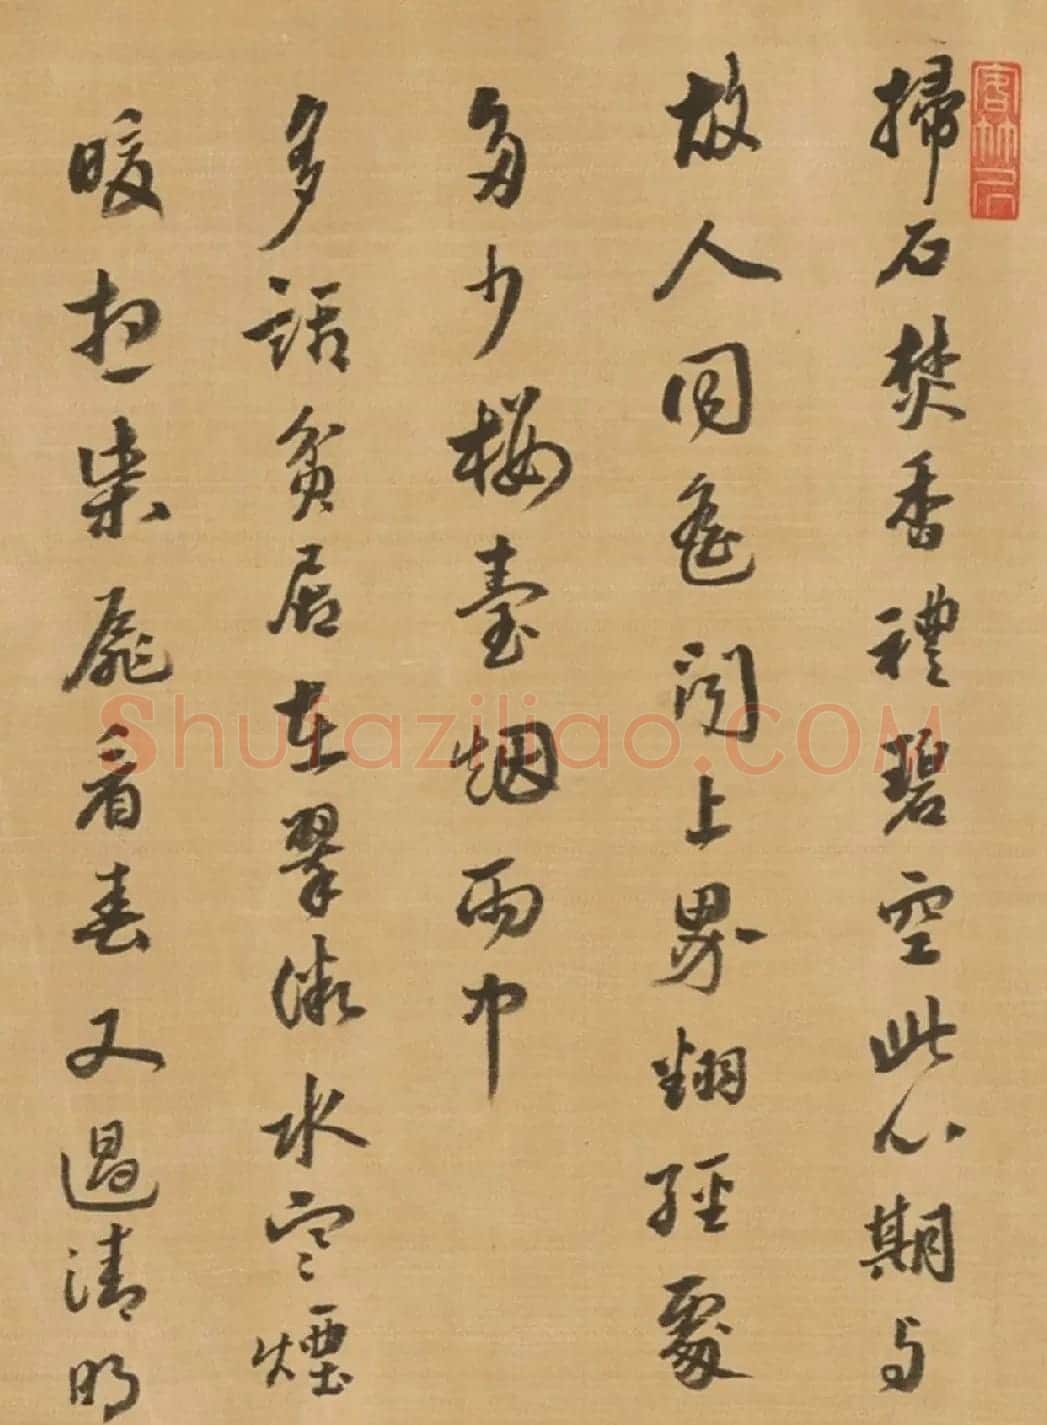 掃石焚香禮碧空此心期与
故人同遙聞上界翻經處
多少樓臺烟雨中
多話貧居在翠微水寒煙
暖想柴扉看春又過清明
Shufaziliao.COM